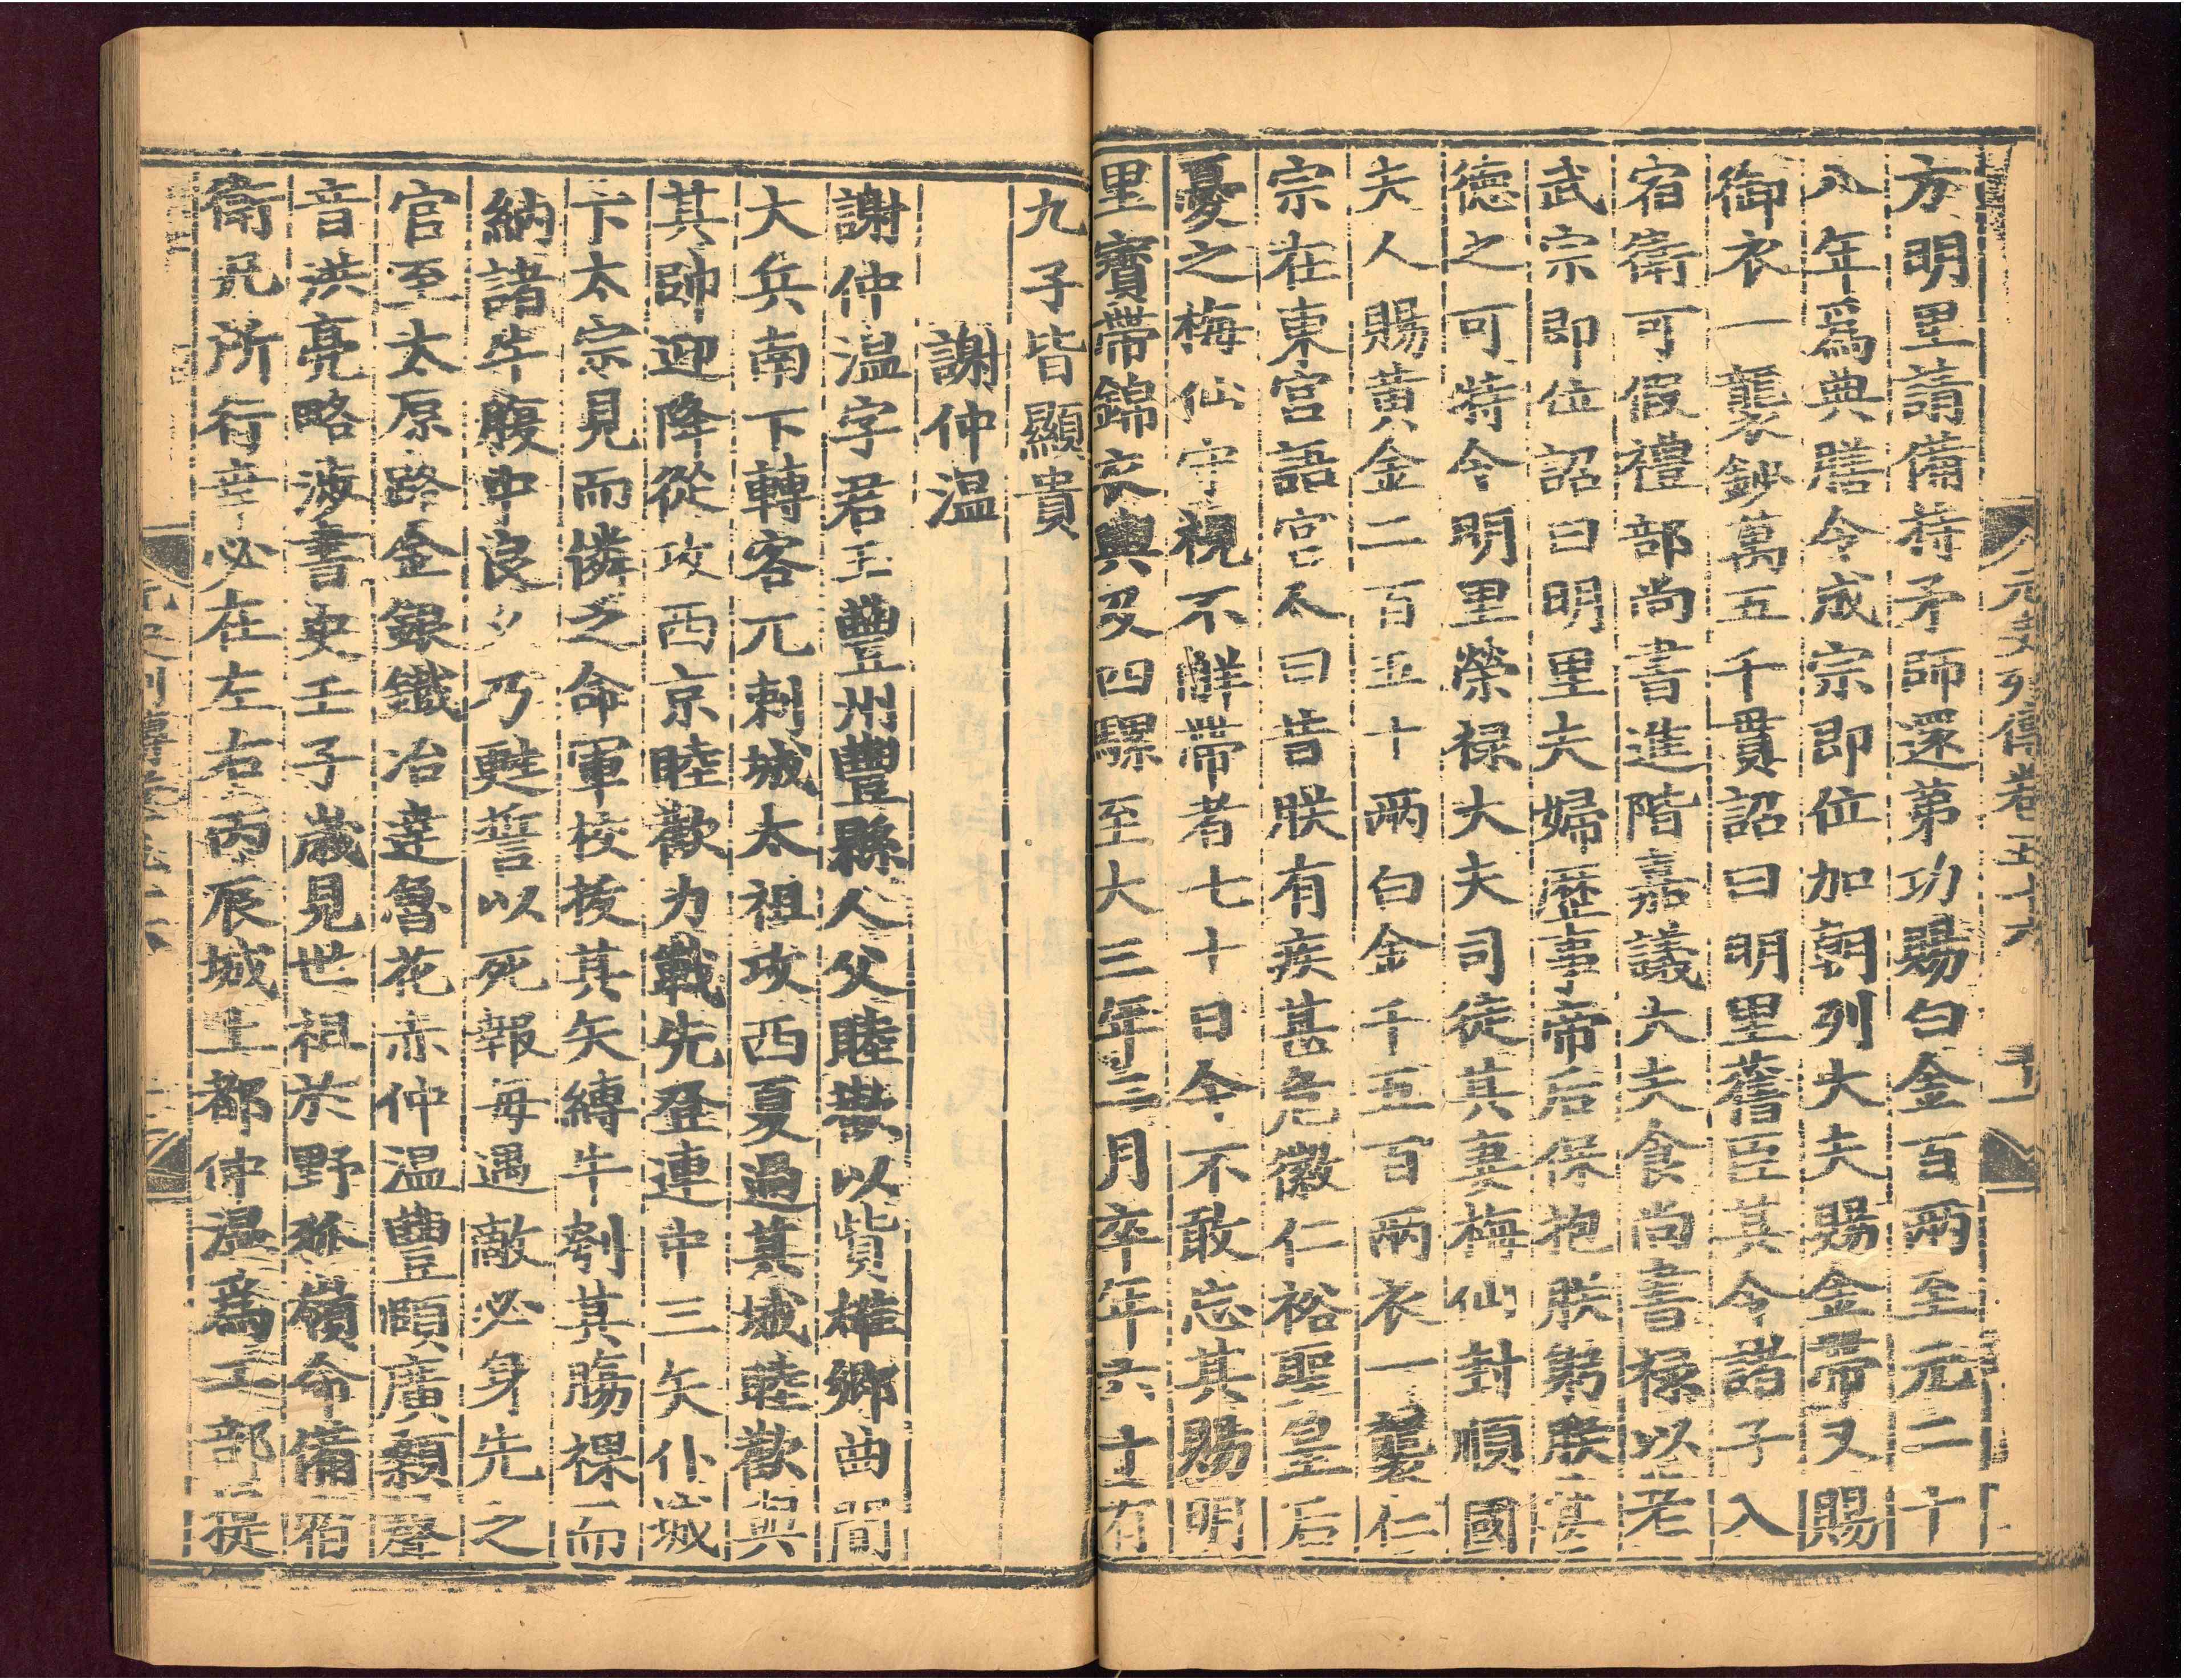 元史列傳卷五十六
十一
方明里請備持矛師還第功賜白金百兩至元二十
八年爲典膳令成宗即位加朝列大夫賜金帶又賜
御衣一襲鈔萬五千貫詔曰明里舊臣其令諸子入
宿衛可假禮部尚書進階嘉議大夫食尚書祿以老
武宗即位詔曰明里夫婦歷事帝后保抱朕躬朕甚
德之可特令明里榮祿大夫司徒其妻梅仙封順國
夫人賜黃金二百五十兩白金千五百兩衣一襲仁
宗在東宮語宮太曰昔朕有疾甚危徽仁裕聖皇后
憂之梅仙守視不解帶者七十日今不敢忘其賜明
里寶帶錦衣輿及四騾至大三年三月卒年六十有
九子皆顯貴
謝仲温
謝仲温字君玉豐州豐縣人父睦歡以貲雄鄉曲間
大兵南下轉客兀剌城太祖攻西夏過其城睦歡與
其帥迎降從攻西京睦歡力戰先登連中三矢仆城
下太宗見而憐之命軍校拔其矢縛牛刳其膓裸而
納諸牛腹中良久乃甦誓以死報每遇敵必身先之
官至太原路金銀鐵冶達魯花赤仲温豐頤廣顙聲
音洪亮略涉書史壬子歲見世祖於野狐嶺命備宿
衛凡所行幸必在左右丙辰城上都仲温爲工部提